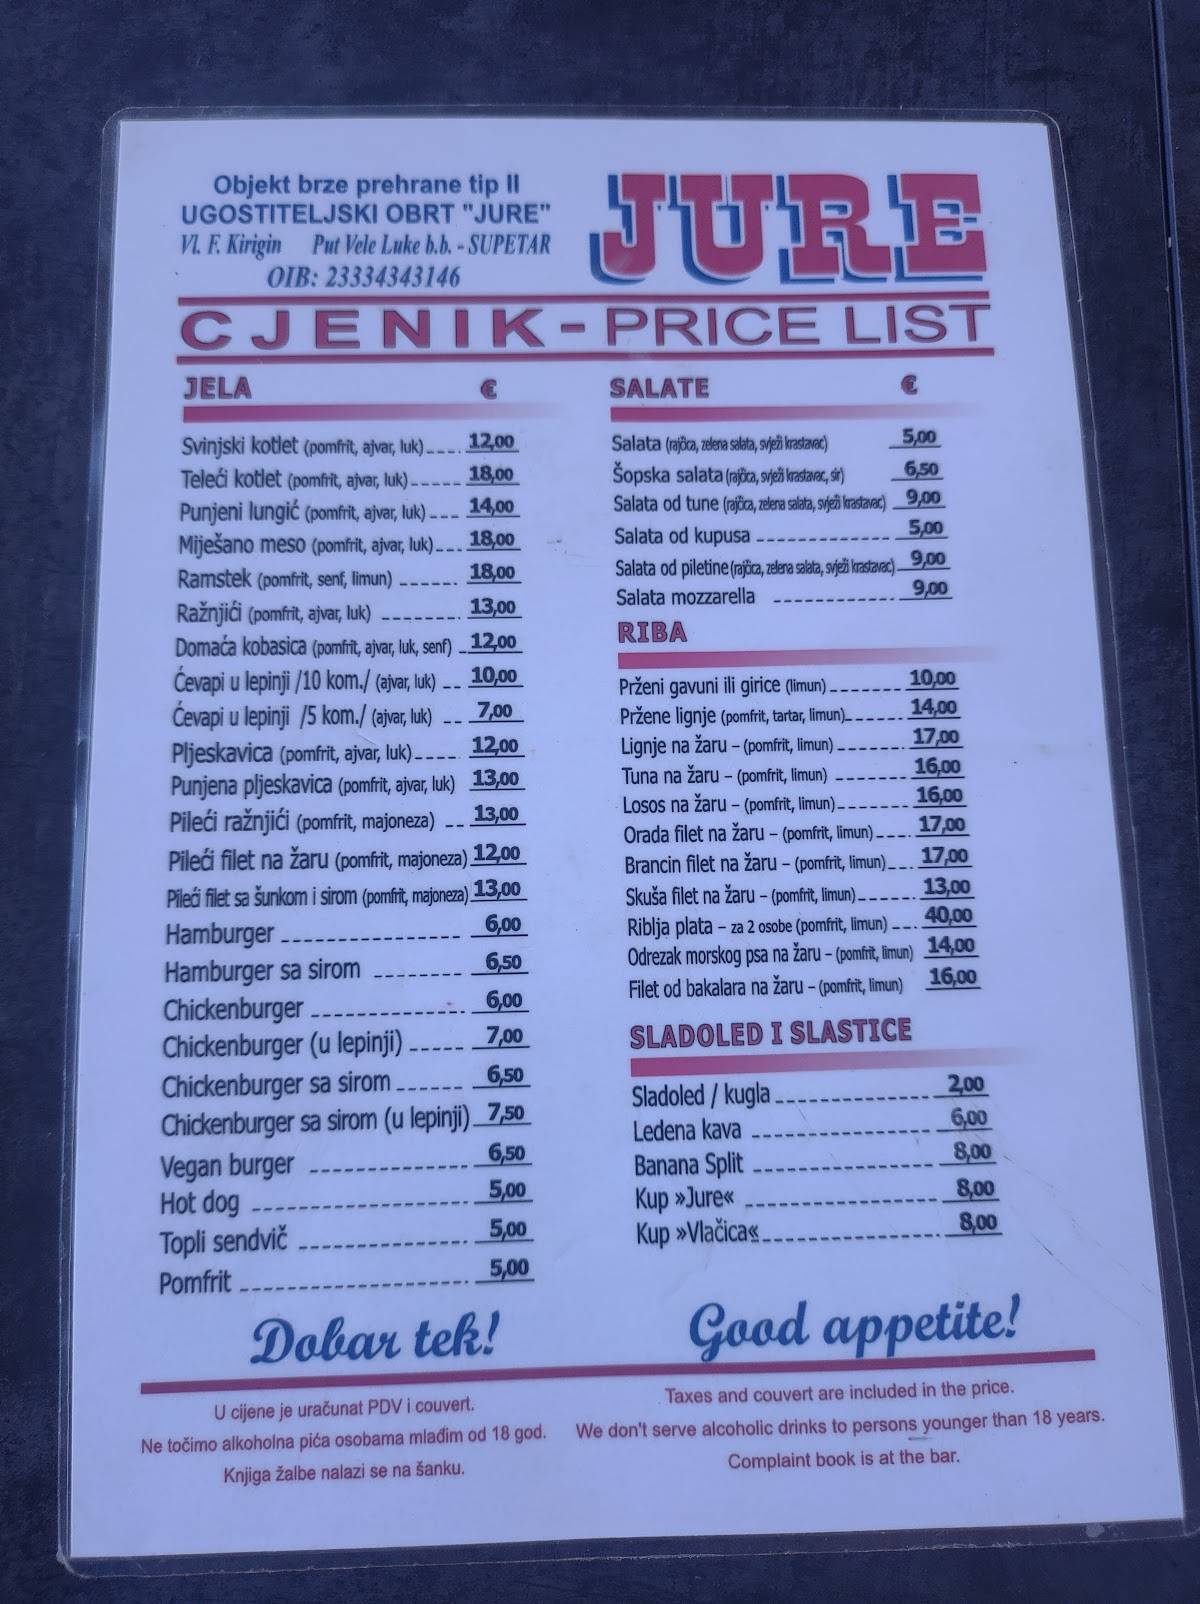 Objekt brze prehrane tip II
UGOSTITELJSKI OBRT "JURE"
Vl. F. Kirigin Put Vele Luke b.b. - SUPETAR
OIB: 23334343146
JURE
CJENIK - PRICE LIST
JELA €
Svinjski kotlet (pomfrit, ajvar, luk) 12,00
Teleći kotlet (pomfrit, ajvar, luk) 18,00
Punjeni lungić (pomfrit, ajvar, luk) 14,00
Miješano meso (pomfrit, ajvar, luk) 18,00
Ramstek (pomfrit, senf, limun) 18,00
Ražnjići (pomfrit, ajvar, luk) 13,00
Domaća kobasica (pomfrit, ajvar, luk, senf) 12,00
Ćevapi u lepinji /10 kom./ (ajvar, luk) 10,00
Ćevapi u lepinji /5 kom./ (ajvar, luk) 7,00
Pljeskavica (pomfrit, ajvar, luk) 12,00
Punjena pljeskavica (pomfrit, ajvar, luk) 13,00
Pileći ražnjići (pomfrit, majoneza) 13,00
Pileći filet na žaru (pomfrit, majoneza) 12,00
Pileći filet sa šunkom i sirom (pomfrit, majoneza) 13,00
Hamburger 6,00
Hamburger sa sirom 6,50
Chickenburger 6,00
Chickenburger (u lepinji) 7,00
Chickenburger sa sirom 6,50
Chickenburger sa sirom (u lepinji) 7,50
Vegan burger 6,50
Hot dog 5,00
Topli sendvič 5,00
Pomfrit 5,00
SALATE €
Salata (rajčica, zelena salata, svježi krastavac) 5,00
Šopska salata (rajčica, svježi krastavac, sir) 6,50
Salata od tune (rajčica, zelena salata, svježi krastavac) 9,00
Salata od kupusa 5,00
Salata od piletine (rajčica, zelena salata, svježi krastavac) 9,00
Salata mozzarella 9,00
RIBA
Prženi gavuni ili girice (limun) 10,00
Pržene lignje (pomfrit, tartar, limun) 14,00
Lignje na žaru – (pomfrit, limun) 17,00
Tuna na žaru – (pomfrit, limun) 16,00
Losos na žaru – (pomfrit, limun) 16,00
Orada filet na žaru – (pomfrit, limun) 17,00
Brancin filet na žaru – (pomfrit, limun) 17,00
Skuša filet na žaru – (pomfrit, limun) 13,00
Riblja plata – za 2 osobe (pomfrit, limun) 40,00
Odrezak morskog psa na žaru – (pomfrit, limun) 14,00
Filet od bakalara na žaru – (pomfrit, limun) 16,00
SLADOLED I SLASTICE
Sladoled / kugla 2,00
Ledena kava 6,00
Banana Split 8,00
Kup »Jure« 8,00
Kup »Vlačica« 8,00
Dobar tek!
Good appetite!
U cijene je uračunat PDV i couvert.
Ne točimo alkoholna pića osobama mlađim od 18 god.
Knjiga žalbe nalazi se na šanku.
Taxes and couvert are included in the price.
We don't serve alcoholic drinks to persons younger than 18 years.
Complaint book is at the bar.